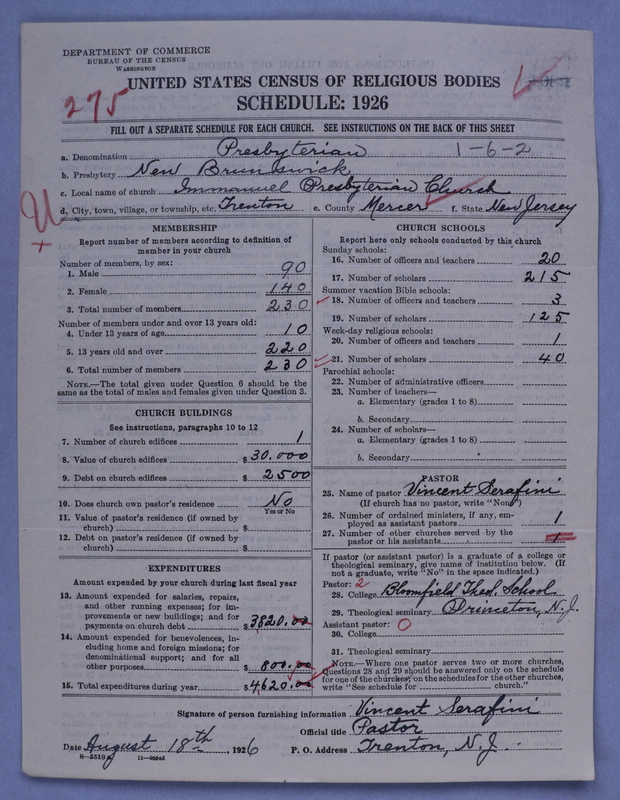 DEPARTMENT OF COMMERCE
BUREAU OF THE CENSUS
WASHINGTON
UNITED STATES CENSUS OF RELIGIOUS BODIES
275
SCHEDULE: 1926
FILL OUT A SEPARATE SCHEDULE FOR EACH CHURCH. SEE INSTRUCTIONS ON THE BACK OF THIS SHEET
a. Denomination Presbyterian 1-6-2
b. Presbytery New Brunswick
c. Local name of church Immanuel Presbyterian Church
d. City, town, village, or township, etc. Trenton e. County Mercer f. State New Jersey
U
x
MEMBERSHIP
Report number of members according to definition of
member in your church
Number of members, by sex:
1. Male 90
2. Female 140
3. Total number of members 230
Number of members under and over 13 years old:
4. Under 13 years of age 10
5. 13 years old and over 220
6. Total number of members 230
NOTE.—The total given under Question 6 should be the
same as the total of males and females given under Question 3.
CHURCH BUILDINGS
See instructions, paragraphs 10 to 12
7. Number of church edifices 1
8. Value of church edifices $ 30.000
9. Debt on church edifices $ 2500
10. Does church own pastor's residence No
Yes or No
11. Value of pastor's residence (if owned by
church) $
12. Debt on pastor's residence (if owned by
church) $
EXPENDITURES
Amount expended by your church during last fiscal year
13. Amount expended for salaries, repairs,
and other running expenses; for im-
provements or new buildings; and for
payments on church debt $ 3820.00
14. Amount expended for benevolences, in-
cluding home and foreign missions; for
denominational support; and for all
other purposes $ 800.00
15. Total expenditures during year $ 4620.00
CHURCH SCHOOLS
Report here only schools conducted by this church
Sunday schools:
16. Number of officers and teachers 20
17. Number of scholars 215
Summer vacation Bible schools:
18. Number of officers and teachers 3
19. Number of scholars 125
Week-day religious schools:
20. Number of officers and teachers 1
21. Number of scholars 40
Parochial schools:
22. Number of administrative officers
23. Number of teachers—
a. Elementary (grades 1 to 8)
b. Secondary
24. Number of scholars—
a. Elementary (grades 1 to 8)
b. Secondary
PASTOR
25. Name of pastor Vincent Serafini
(If church has no pastor, write "None")
26. Number of ordained ministers, if any, em-
ployed as assistant pastors 1
27. Number of other churches served by the
pastor or his assistants 1
If pastor (or assistant pastor) is a graduate of a college or
theological seminary, give name of institution below. (If
not a graduate, write "No" in the space indicated.)
Pastor: 2
28. College Bloomfield Theol. School
29. Theological seminary Princeton, N.J.
Assistant pastor: O
30. College
31. Theological seminary
NOTE.—Where one pastor serves two or more churches,
Questions 28 and 29 should be answered only on the schedule
for one of the churches; on the schedules for the other churches,
write "See schedule for church."
Signature of person furnishing information Vincent Serafini
Official title Pastor
Date August 18th, 1926 P. O. Address Trenton, N.J.